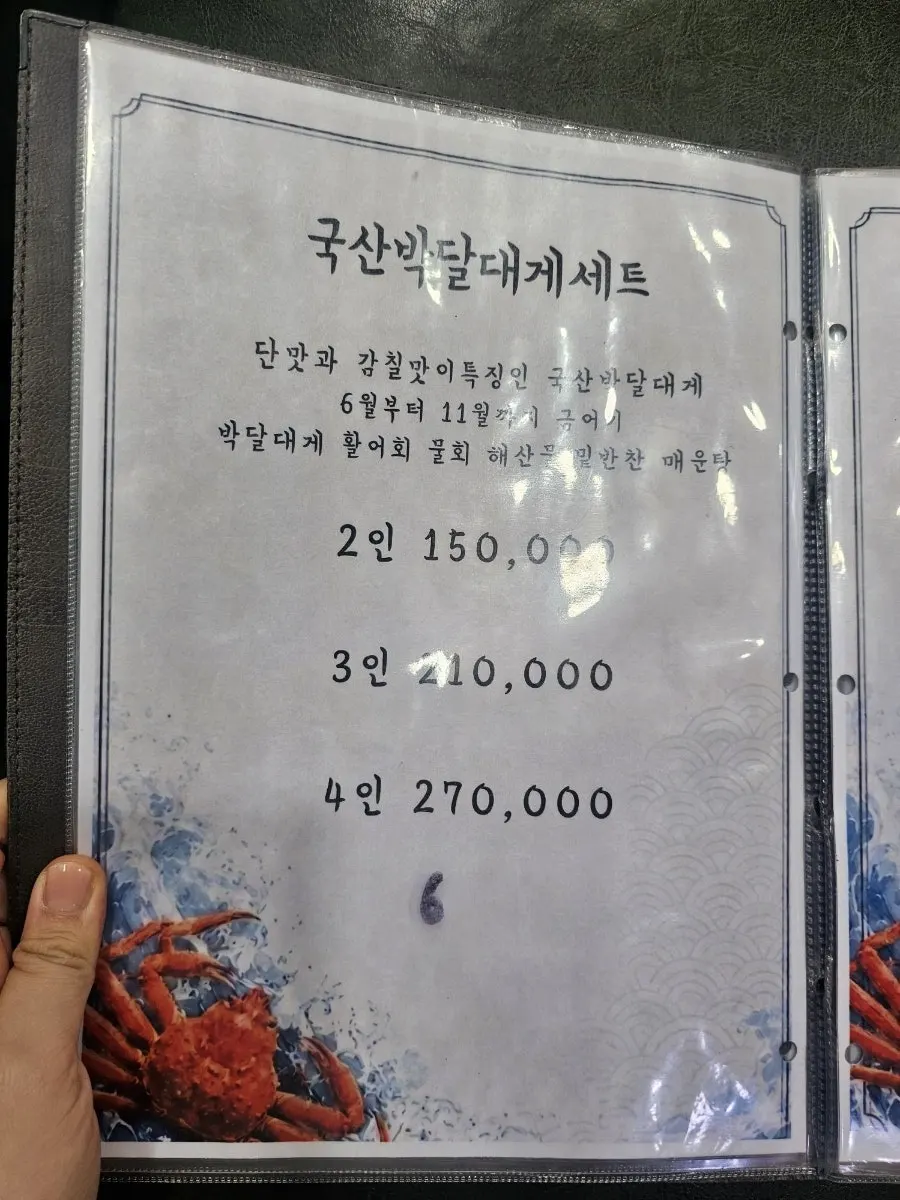 국산박달대게세트
단맛과 감칠맛이특징인 국산박달대게
6월부터 11월까지 금어기
박달대게 활어회 물회 해산물 밑반찬 매운탕
2인 150,000
3인 210,000
4인 270,000
6